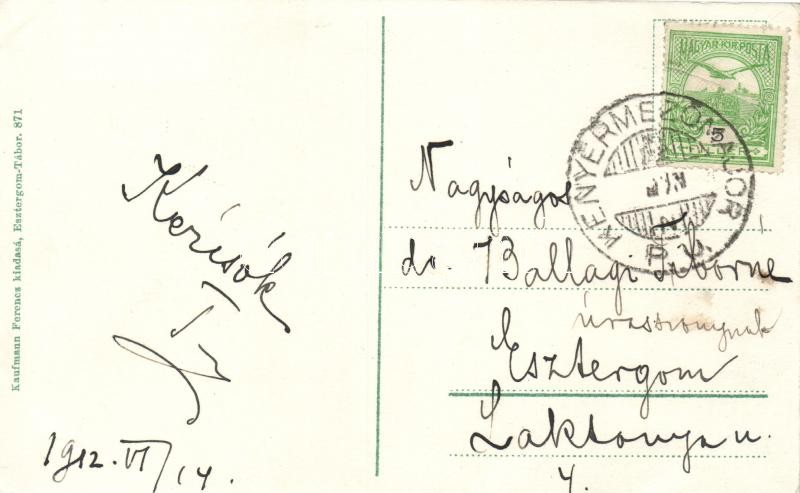 Kaufmann Ferencz kiadasá, Esztergom-Tábor. 871
Kézcsók
1912. VI/14.
MAGYAR·KIR·POSTA
5
KENYÉRMEZŐI TÁBOR
Nagyságos
dr. Ballagi Tiborné
úrasszonynak
Esztergom
Laktanya u.
4.